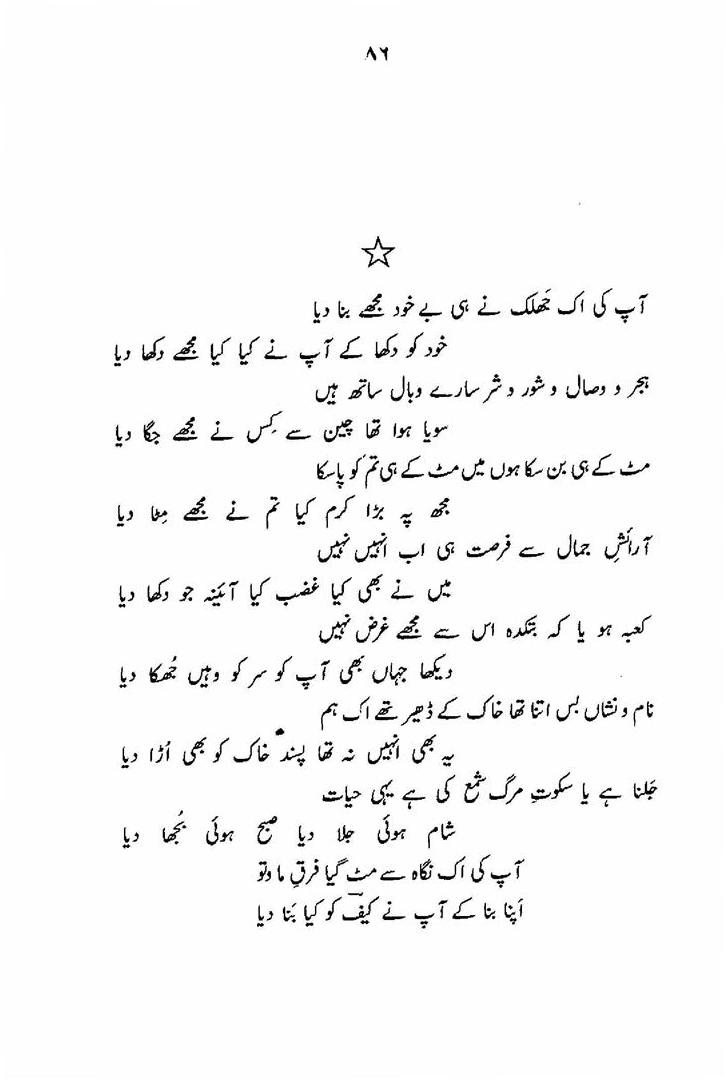 ۸۶
آپ کی اک جَھلک نے ہی بے خود مجھے بنا دیا
خود کو دکھا کے آپ نے کیا کیا مجھے دکھا دیا
ہجر و وصال و شور و شر سارے وبال ساتھ ہیں
سویا ہوا تھا چین سے کِس نے مجھے جگا دیا
مٹ کے ہی بن سکا ہوں میں مٹ کے ہی تم کو پا سکا
مجھ پہ بڑا کرم کیا تم نے مجھے مِٹا دیا
آرائشِ جمال سے فرصت ہی اب انہیں نہیں
میں نے بھی کیا غضب کیا آئینہ جو دکھا دیا
کعبہ ہو یا کہ بتکدہ اس سے مجھے غرض نہیں
دیکھا جہاں بھی آپ کو سر کو وہیں جُھکا دیا
نام و نشاں بس اتنا تھا خاک کے ڈھیر تھے اک ہم
یہ بھی انہیں نہ تھا پسند خاک کو بھی اُڑا دیا
جَلنا ہے یا سکوتِ مرگ شمع کی ہے یہی حیات
شام ہوئی جلا دیا صبح ہوئی بُجھا دیا
آپ کی اک نگاہ سے مٹ گیا فرقِ ما و تو
اَپنا بنا کے آپ نے کیفؔ کو کیا بَنا دیا